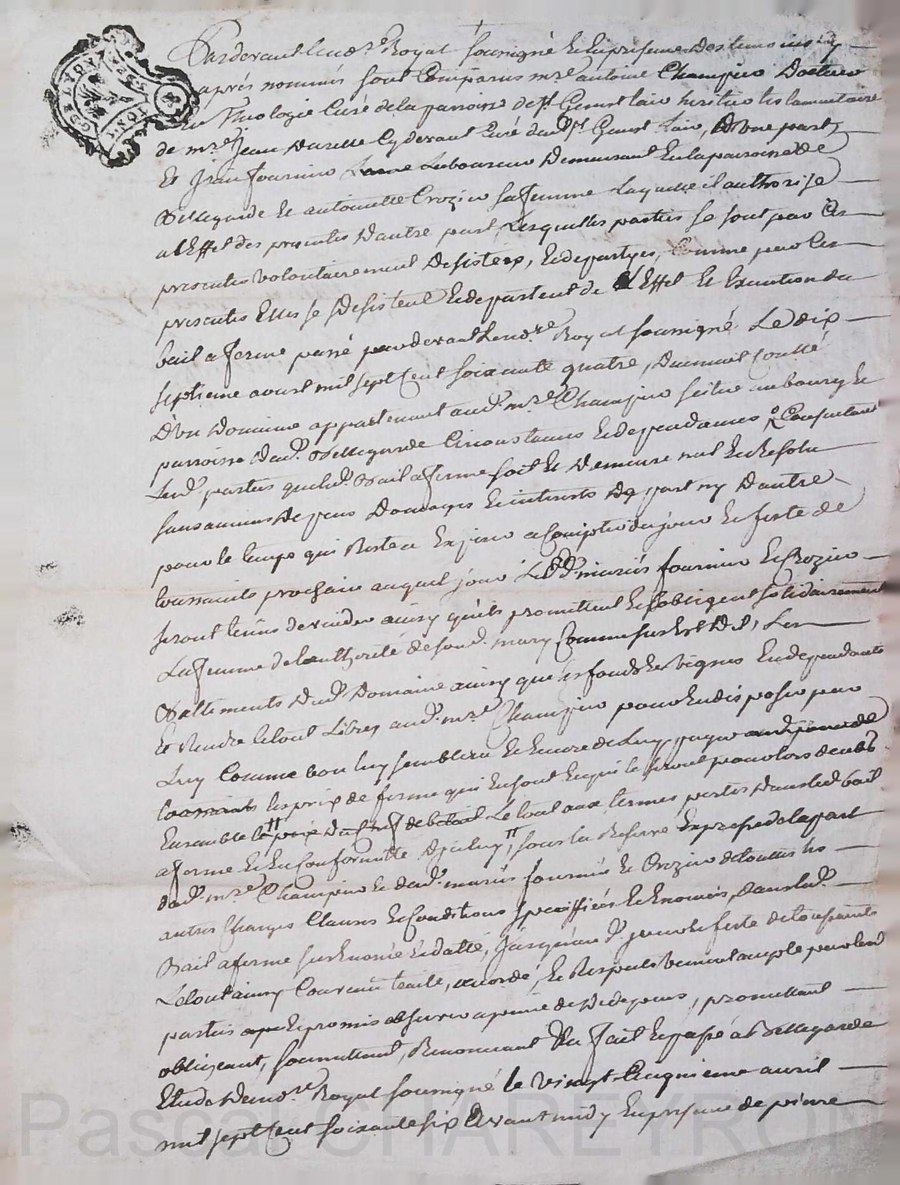 Pardevant le no.re Royal soussigné et en presence des temoins cy
après nommés sont comparus m.re antoine Champier Docteur
en Theologie curé de la paroisse de s.t Genest Lair heritier testamentaire
de m.re Jean Durelle cy devant curé dud. s.t Genest Lair, D'une part
Et Jean fournier Laboureur Demeurant en la paroisse de
Bellegarde et antoinette Crozier sa femme laquelle il authorise
a l'Effet des presentes D'autre part, Lesquelles parties se sont par ces
presentes volontairement Desistées, et departyes, comme par ces
presentes Elles se desistent et departent de L'Effet et Execution du
bail a ferme passé pardevant le no.re Royal soussigné le dix
septieme avril mil sept cent soixante quatre,
D'un Domaine appartenant aud. m.re Champier scitué au bourg et
parroisse dud. Bellegarde circonstances et dependances Consentant
lesd. parties que led. Bail a ferme soit et Demeure nul et resolu
sans aucuns Depens Domages et interests De part ny D'autre
pour le temps qui Reste a Expirer a Compter du jour et feste de
toussaints prochain auquel jour lesd. mariés fournier et Crozier
seront tenus de vuider ainsy qu'ils promettent et s'obligent solidairement
La femme de l'autherité de sond. mary Comme sus est dit, Les
Battiments dud. Domaine ainsy que les fonds et vignes en dependants
Et rendre le tout Libres aud. m.re Champier pour en disposer par
Luy Comme bon luy semblera et encore de luy payer aud. jour de
toussaints les prix de ferme qui en sont et qui le seront pour lors deubs
Ensemble le prix du chef de betail le tout aux termes portés dans led. bail
a ferme et en Conformitté D'iceluy, sous la Reserve Expresse de la part
dud. m.re Champier et desd. mariés fournier et Crozier de touttes les
autres Charges Clauses et Conditions speciffiées et Enoncés, Dans led.
Bail a ferme sus Enoncé et datté, jusqu'au d. jour et feste de toussaints
Le tout ainsy Convenu traité, accordé, et Respectivement accepté par lesd.
parties et promis observer a peine de Depens, promettant
obligeant, soumettant, Renonçant &a fait et passé a Bellegarde
Etude dudit no.re Royal soussigné le vingt cinquieme avril
mil sept cent soixante six avant midy En presence de pierre
Pascal CHAREYRON